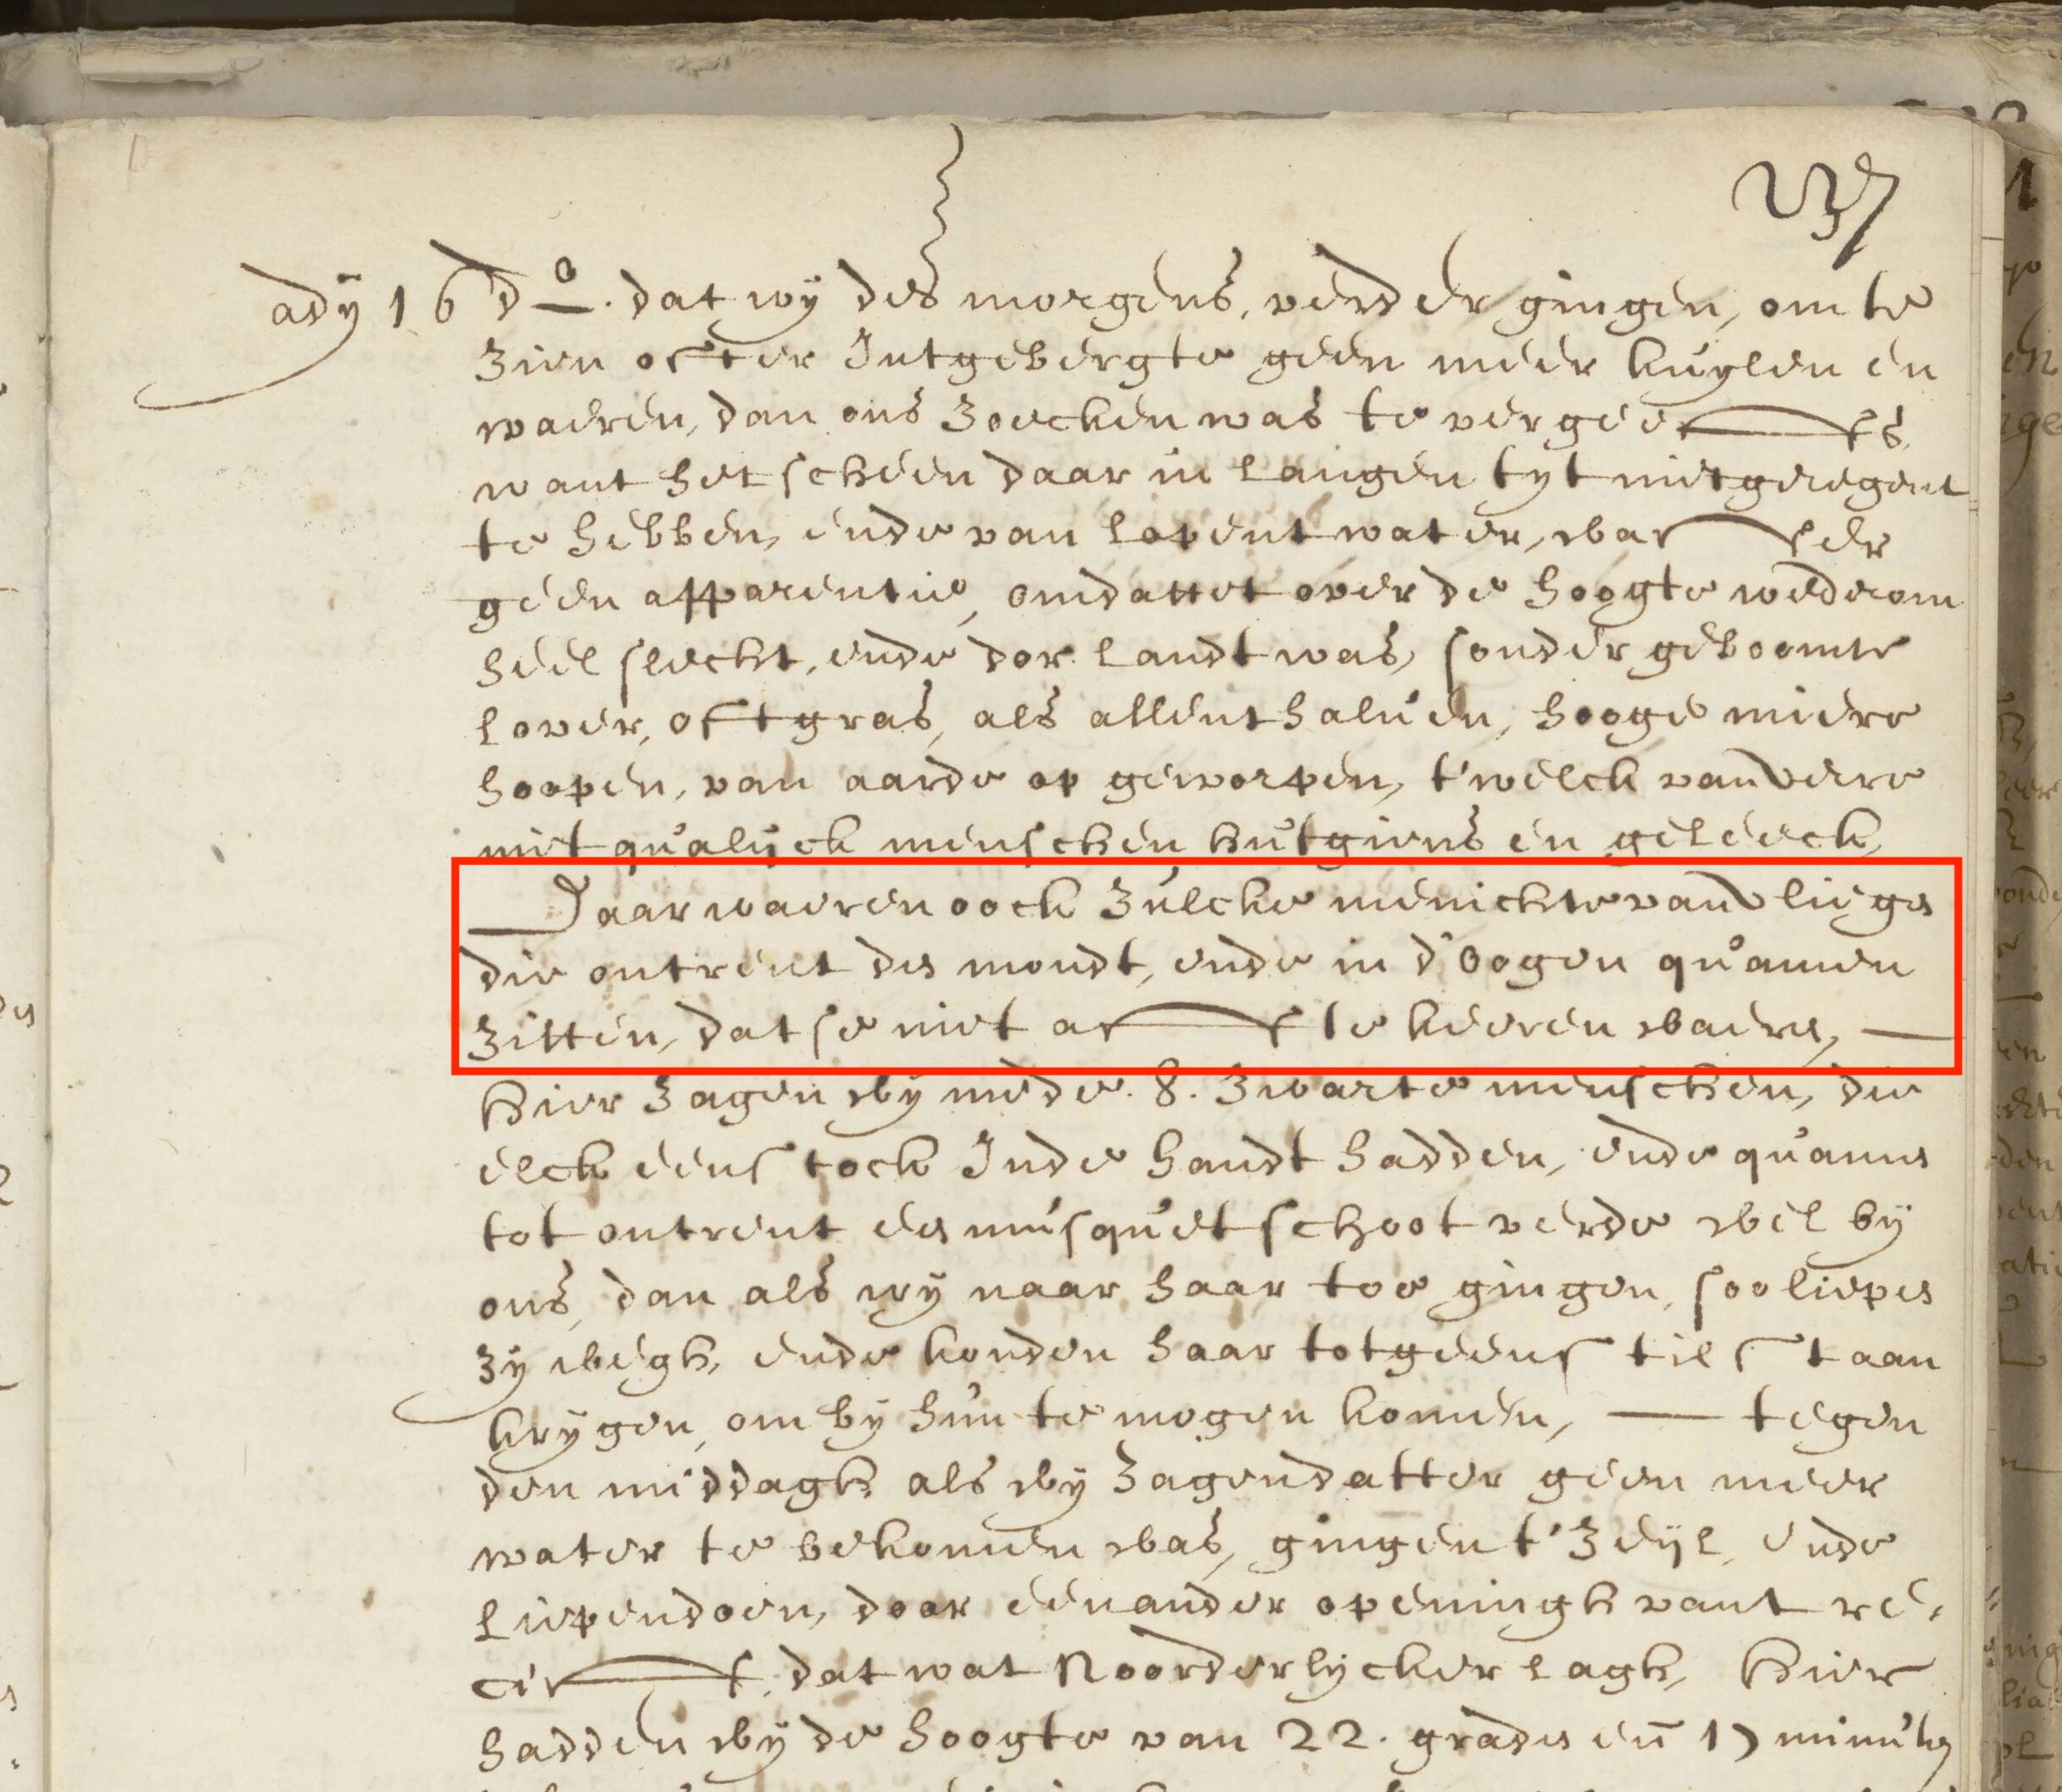 237
ady 16 do. dat wÿ des morgens, verder gingen, om te
zien ofter Intgebergte geen meer kuylen en
waeren, dan ons zoecken was te vergeefs,
want het scheen daar in langen tyt niet geregent
te hebben, ende van lopent water, was der
geen apparentie, omdattet over de hoogte wederom
heel slecht, ende dor landt was, sonder geboomte
lover, oft gras, als allenthaluen, hooge miere
hoopen, van aarde op geworpen, t'welck van vere
niet qualijck menschen hutgiens en geleeck,
Daar waeren oock zulcke menichte van vliegen
die ontrent den mondt, ende in d'oogen quamen
zitten, dat se niet af te keeren waeren,
hier zagen wy mede. 8. zwarte menschen, die
elck een stock Inde handt hadden, ende quamen
tot ontrent een musquet schoot verde wel bÿ
ons, dan als wÿ naar haar toe gingen, soo liepen
zÿ wegh, ende konden haar tot geen stil staan
krÿgen, om bÿ hun te mogen komen, tegen
den middagh als wÿ zagen datter geen meer
water te bekomen was, gingen t'zeÿl, ende
liepen doen, door een ander openingh vant re,
cif, dat wat Noorderlÿcker lagh, hier
hadden wÿ de hoogte van 22. graden eñ 17 minuten